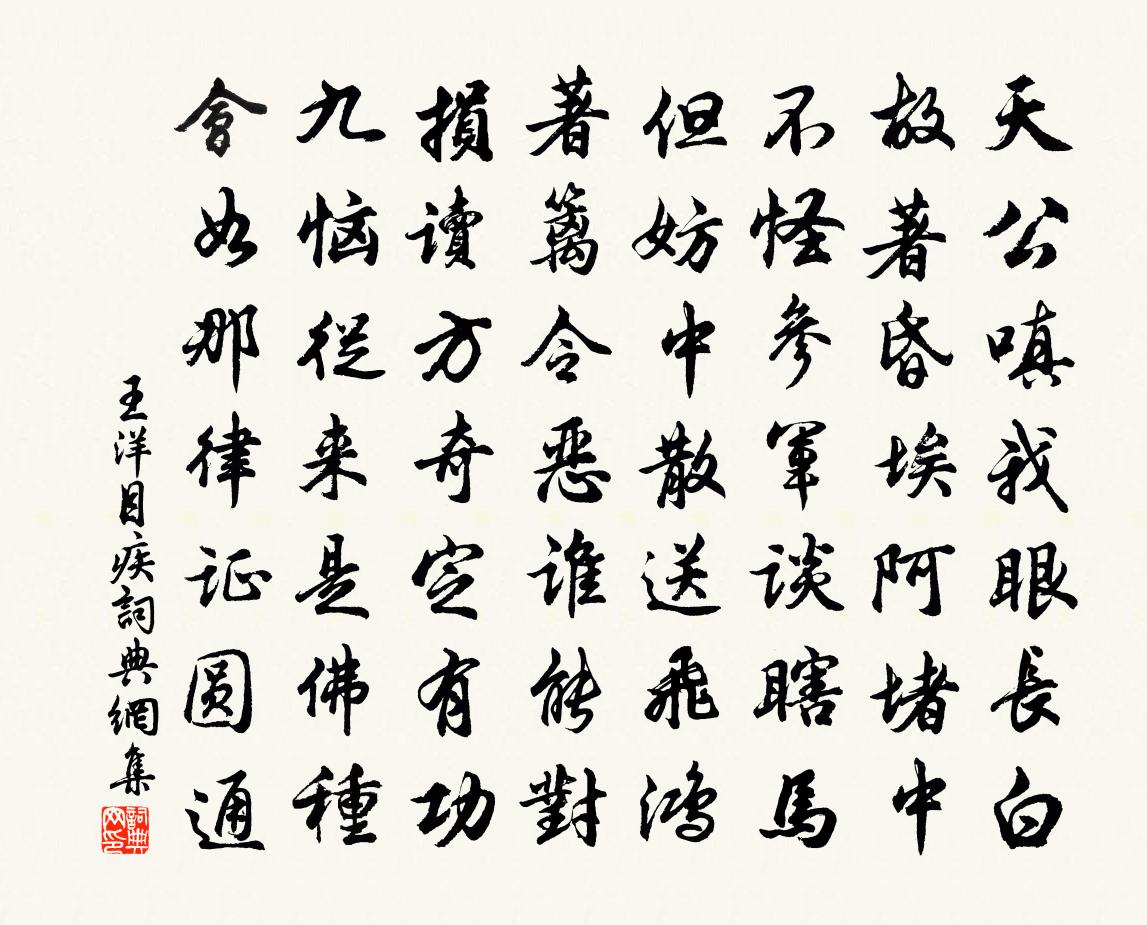 天公嗔我眼長白
故著昏埃阿堵中
不怪參軍谈瞎馬
但妨中散送飛鴻
著篱令惡谁能對
損讀方奇定有功
九恼從来是佛種
會如那律证圆通
王洋目疾詞典網集
詞典网印